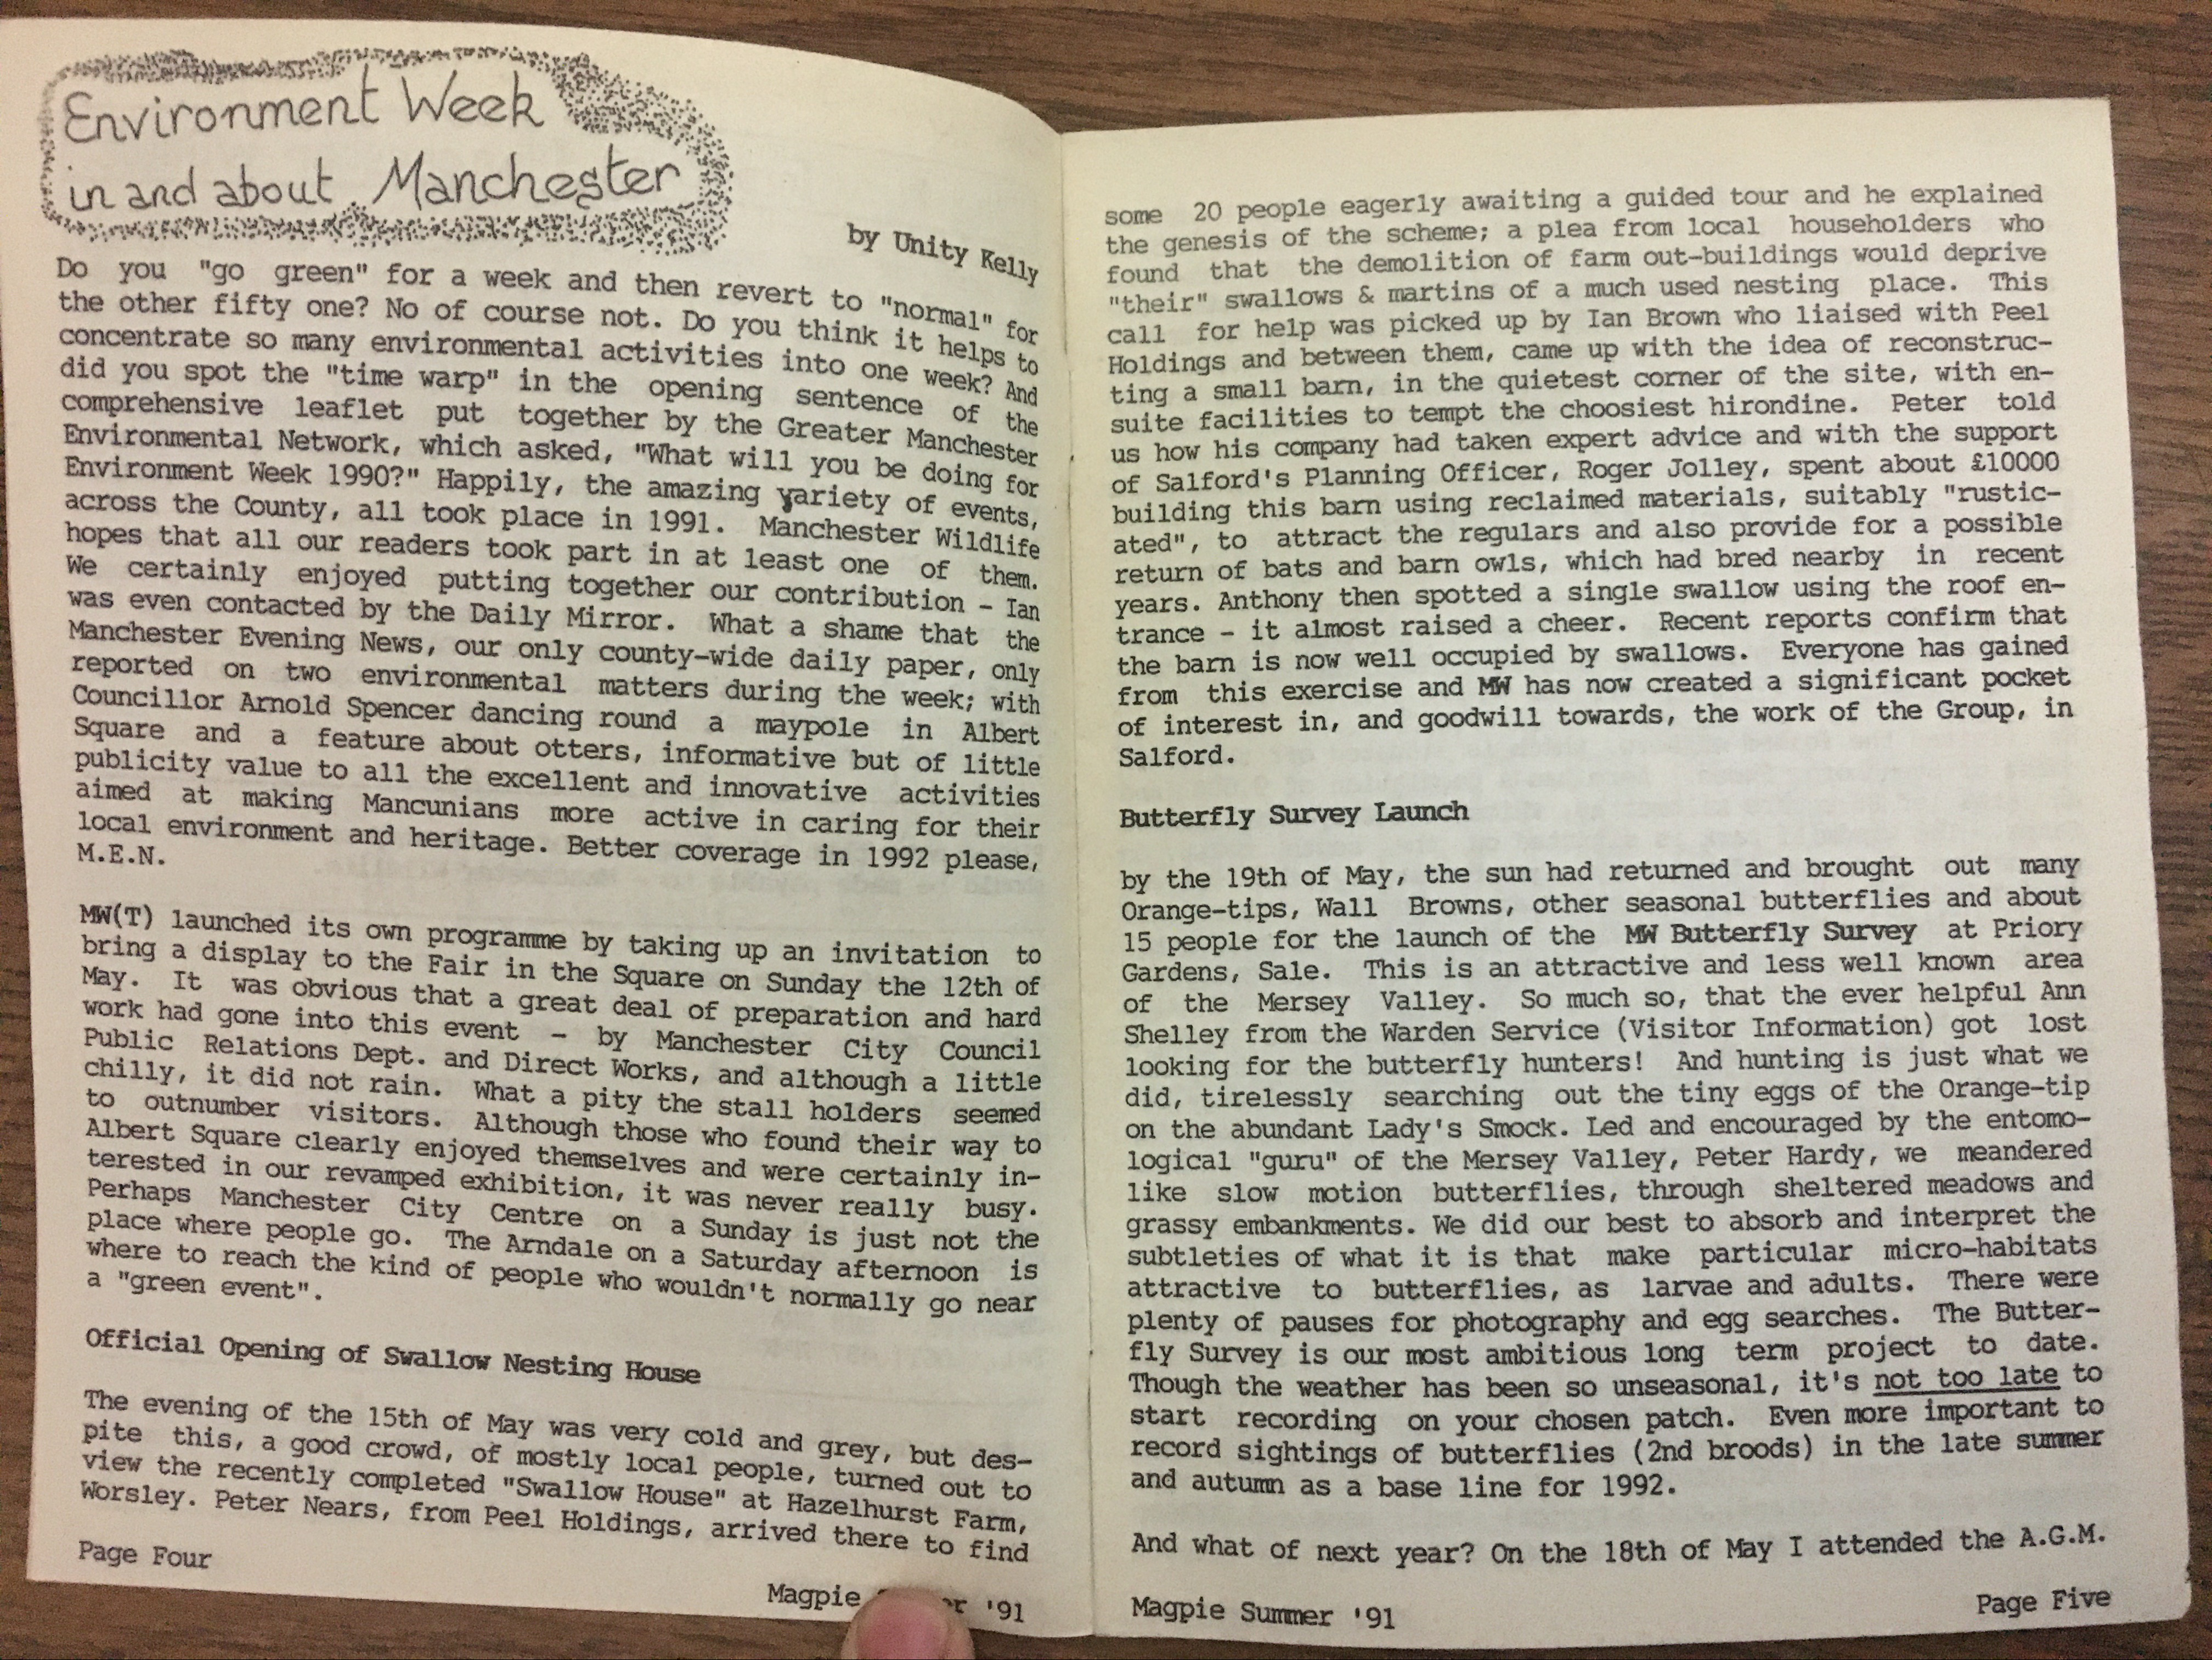 Environment Week
in and about Manchester
by Unity Kelly
Do you "go green" for a week and then revert to "normal" for
the other fifty one? No of course not. Do you think it helps to
concentrate so many environmental activities into one week? And
did you spot the "time warp" in the opening sentence of the
comprehensive leaflet put together by the Greater Manchester
Environmental Network, which asked, "What will you be doing for
Environment Week 1990?" Happily, the amazing variety of events,
across the County, all took place in 1991. Manchester Wildlife
hopes that all our readers took part in at least one of them.
We certainly enjoyed putting together our contribution - Ian
was even contacted by the Daily Mirror. What a shame that the
Manchester Evening News, our only county-wide daily paper, only
reported on two environmental matters during the week; with
Councillor Arnold Spencer dancing round a maypole in Albert
Square and a feature about otters, informative but of little
publicity value to all the excellent and innovative activities
aimed at making Mancunians more active in caring for their
local environment and heritage. Better coverage in 1992 please,
M.E.N.
MW(T) launched its own programme by taking up an invitation to
bring a display to the Fair in the Square on Sunday the 12th of
May. It was obvious that a great deal of preparation and hard
work had gone into this event - by Manchester City Council
Public Relations Dept. and Direct Works, and although a little
chilly, it did not rain. What a pity the stall holders seemed
to outnumber visitors. Although those who found their way to
Albert Square clearly enjoyed themselves and were certainly in-
terested in our revamped exhibition, it was never really busy.
Perhaps Manchester City Centre on a Sunday is just not the
place where people go. The Arndale on a Saturday afternoon is
where to reach the kind of people who wouldn't normally go near
a "green event".
Official Opening of Swallow Nesting House
The evening of the 15th of May was very cold and grey, but des-
pite this, a good crowd, of mostly local people, turned out to
view the recently completed "Swallow House" at Hazelhurst Farm,
Worsley. Peter Nears, from Peel Holdings, arrived there to find
Page Four
Magpie '91
some 20 people eagerly awaiting a guided tour and he explained
the genesis of the scheme; a plea from local householders who
found that the demolition of farm out-buildings would deprive
"their" swallows & martins of a much used nesting place. This
call for help was picked up by Ian Brown who liaised with Peel
Holdings and between them, came up with the idea of reconstruc-
ting a small barn, in the quietest corner of the site, with en-
suite facilities to tempt the choosiest hirondine. Peter told
us how his company had taken expert advice and with the support
of Salford's Planning Officer, Roger Jolley, spent about £10000
building this barn using reclaimed materials, suitably "rustic-
ated", to attract the regulars and also provide for a possible
return of bats and barn owls, which had bred nearby in recent
years. Anthony then spotted a single swallow using the roof en-
trance - it almost raised a cheer. Recent reports confirm that
the barn is now well occupied by swallows. Everyone has gained
from this exercise and MW has now created a significant pocket
of interest in, and goodwill towards, the work of the Group, in
Salford.
Butterfly Survey Launch
by the 19th of May, the sun had returned and brought out many
Orange-tips, Wall Browns, other seasonal butterflies and about
15 people for the launch of the MW Butterfly Survey at Priory
Gardens, Sale. This is an attractive and less well known area
of the Mersey Valley. So much so, that the ever helpful Ann
Shelley from the Warden Service (Visitor Information) got lost
looking for the butterfly hunters! And hunting is just what we
did, tirelessly searching out the tiny eggs of the Orange-tip
on the abundant Lady's Smock. Led and encouraged by the entomo-
logical "guru" of the Mersey Valley, Peter Hardy, we meandered
like slow motion butterflies, through sheltered meadows and
grassy embankments. We did our best to absorb and interpret the
subtleties of what it is that make particular micro-habitats
attractive to butterflies, as larvae and adults. There were
plenty of pauses for photography and egg searches. The Butter-
fly Survey is our most ambitious long term project to date.
Though the weather has been so unseasonal, it's not too late to
start recording on your chosen patch. Even more important to
record sightings of butterflies (2nd broods) in the late summer
and autumn as a base line for 1992.
And what of next year? On the 18th of May I attended the A.G.M.
Magpie Summer '91
Page Five